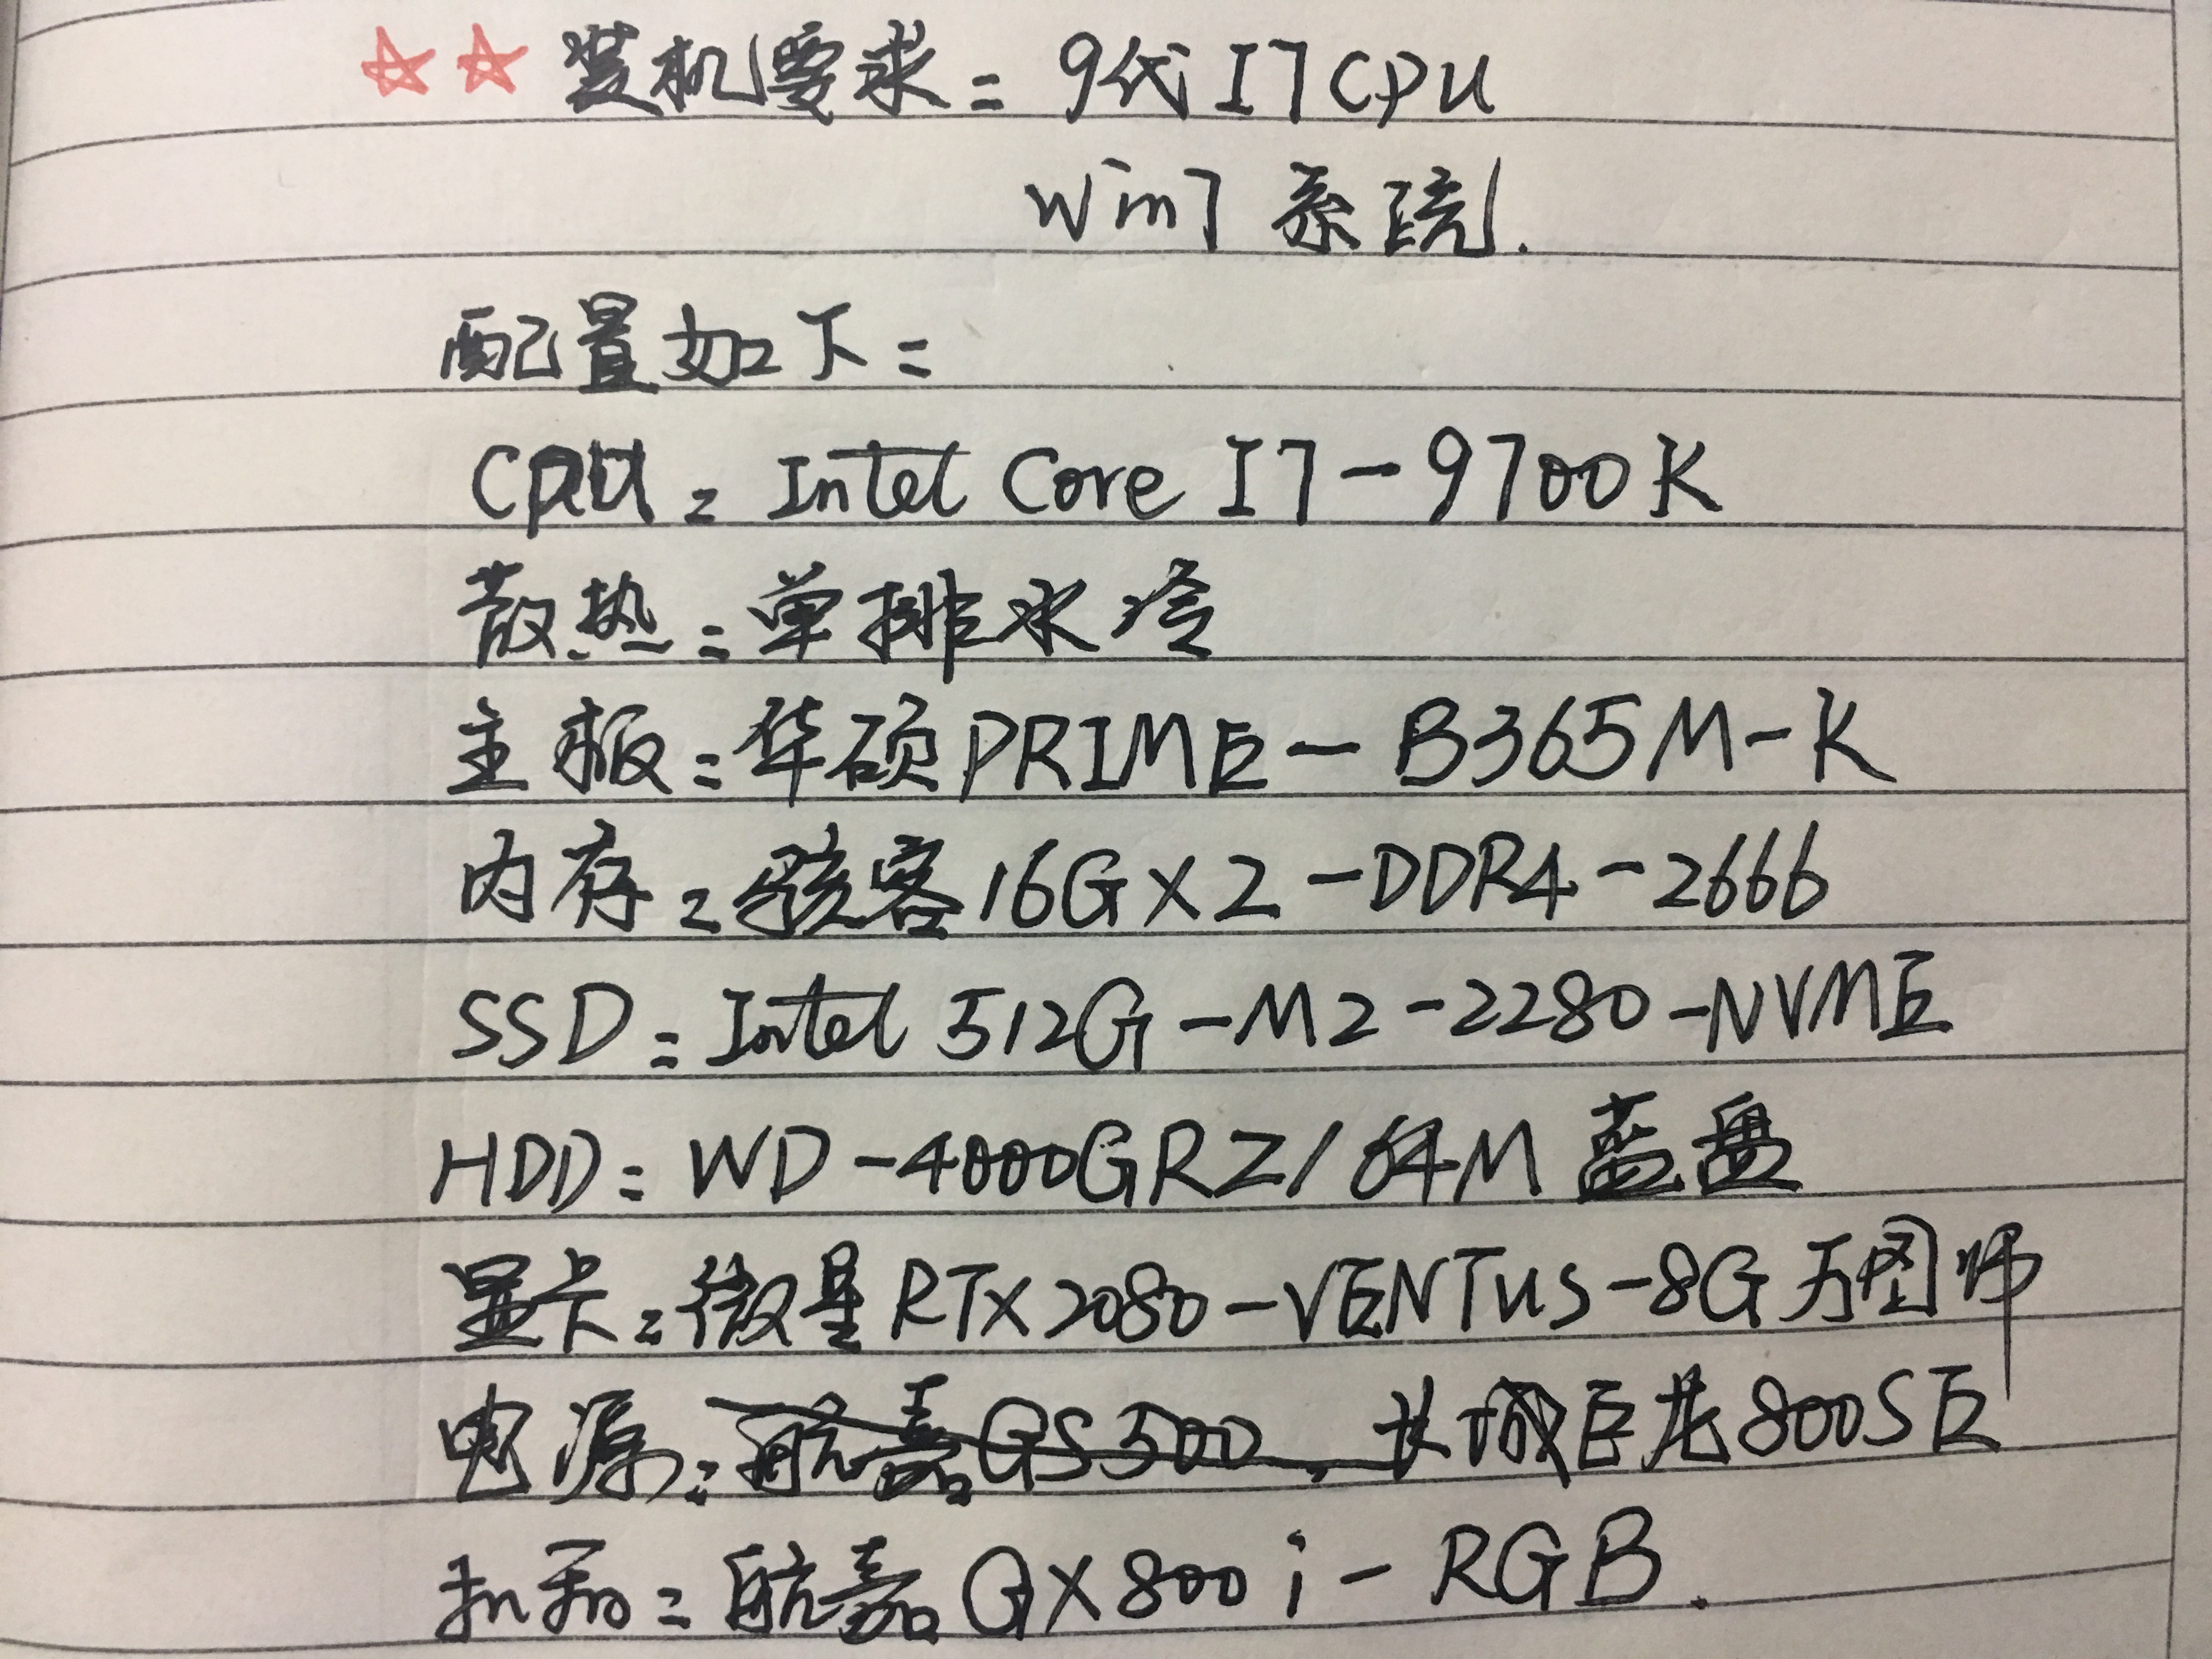 ☆☆装机要求：9代I7CPU
Win7系统.
配置如下：
CPU：Intel Core I7-9700K
散热：单排水冷
主板：华硕PRIME-B365M-K
内存：骇客16GX2-DDR4-2666
SSD：Intel 512G-M2-2280-NVME
HDD：WD-4000GRZ/64M蓝盘
显卡：微星RTX2080-VENTUS-8G万图师
电源：航嘉GS500，长城巨龙800SE
机箱：航嘉GX800i-RGB.